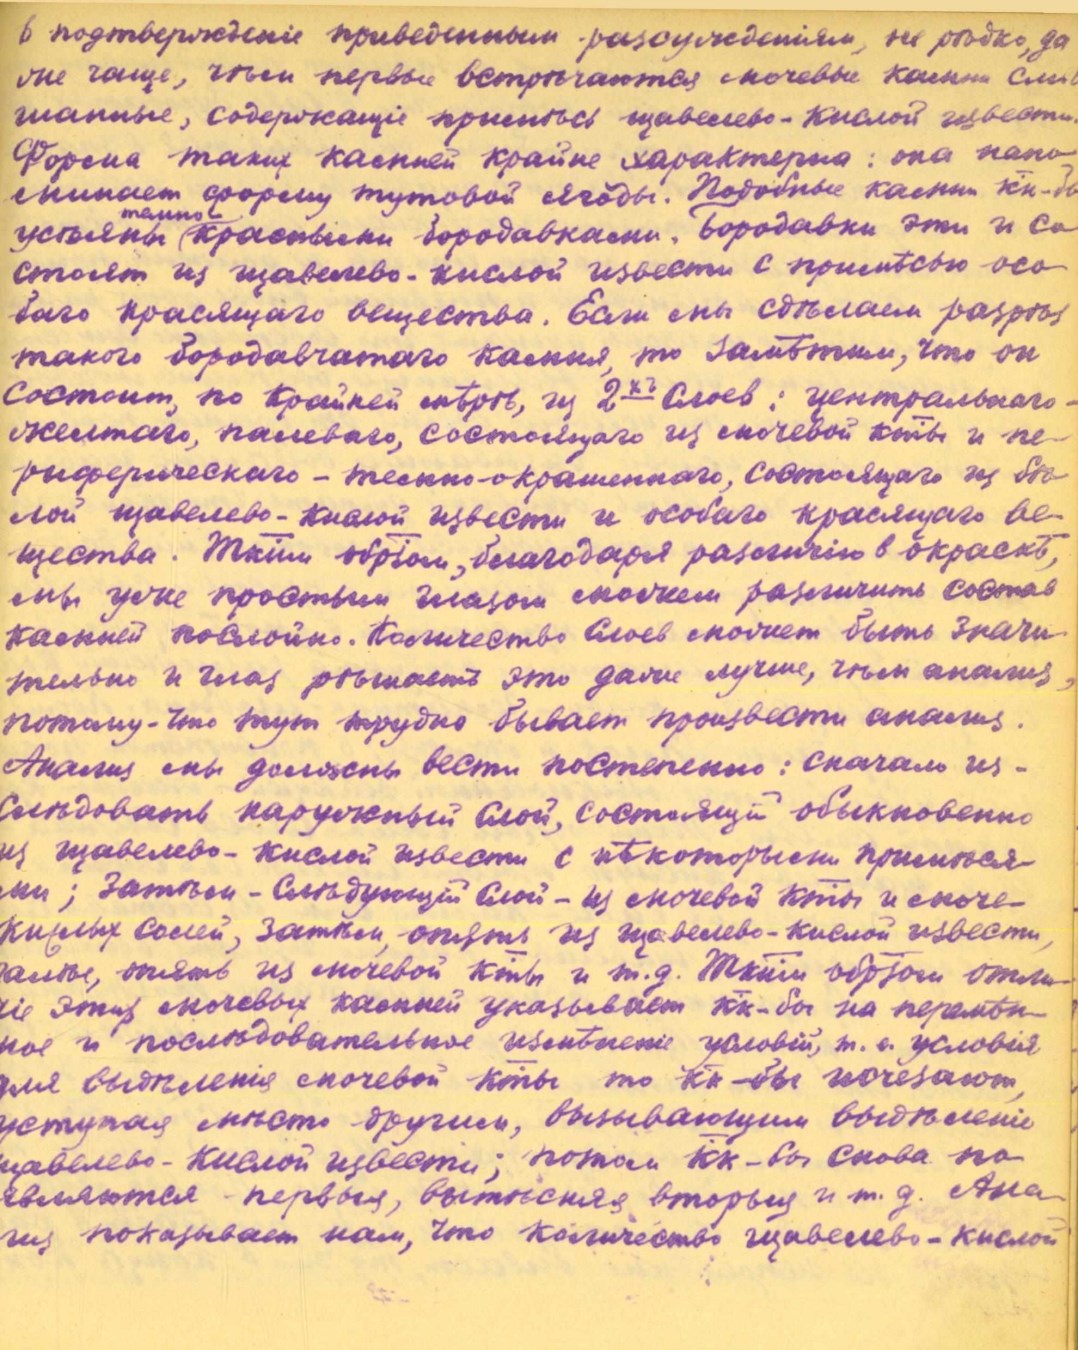 в подтвержденіе приведеннымъ разсужденіямъ, не рѣдко, да
же чаще, чѣмъ первые встрѣчаются мочевые камни смѣ
шанные, содержащіе примѣсь щавелево-кислой извести.
Форма такихъ камней крайне характерна: она напо-
минаетъ форму тутовой ягоды. Подобные камни кк-бы
усѣяны темно-
красными бородавками. Бородавки эти и со-
стоятъ из щавелево-кислой извести с примѣсью осо-
баго красящаго вещества. Если мы сдѣлаем разрѣз
такого бородавчатаго камня, то замѣтим, что он
состоит, по крайней мѣрѣ, из 2-хъ слоев: центральнаго-
желтаго, палеваго, состоящаго из мочевой кты и пе-
риферическаго - темно-окрашеннаго, состоящаго из бѣ-
лой щавелево-кислой извести и особаго красящаго ве-
щества. Тким обрзом, благодаря различію в окраскѣ,
мы уже простым глазом можем различить состав
камней послойно. Количество слоев может быть значи-
тельно и глаз рѣшаетъ это даже лучше, чѣм анализ,
потому-что тут трудно бывает произвести анализ.
Анализ мы должны вести постепенно: сначала из-
слѣдовать наружный слой, состоящій обыкновенно
из щавелево-кислой извести с нѣкоторыми примѣся-
ми; затѣм - слѣдующій слой - из мочевой кты и моче-
кислых солей, затѣм, опять из щавелево-кислой извести,
далѣе, опять из мочевой кты и т.д. Тким обрзом отли-
чіе этих мочевых камней указывает кк-бы на перемѣн-
ное и послѣдовательное измѣненіе условій, т. е. условія
для выдѣленія мочевой кты то кк-бы исчезают,
уступая мѣсто другим, вызывающим выдѣленіе
щавелево-кислой извести; потом кк-бы снова по-
являются первыя, вытѣсняя вторыя и т. д. Ана-
лиз показывает нам, что количество щавелево-кислой